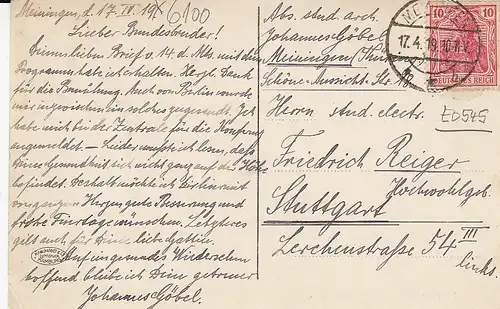 Meiningen, d. 17. IV. 19.
6100
Lieber Bundesbruder!
Deinen lieben Brief v. 14. d. Mts. mit dem
Programm habe ich erhalten. Herzl. Dank
für die Bemühung. Auch von Berlin wurde
mir inzwischen ein solches zugesandt. Ich
habe mich bei der Zentrale für die
angemeldet. – Leider muß ich lesen, daß
Deine Gesundheit sich nicht ganz auf der Höhe
befindet. Deshalb möchte ich Dir
von ganzem Herzen gute Besserung und
frohe Feiertage wünschen. Letzteres
gilt auch für Deine liebe Gattin.
Auf ein gesundes Wiedersehen
hoffend bleibe ich Dein getreuer
Johannes Göbel.
Abs. stud. arch.
Johannes Göbel
Meiningen /Thür.
Schöne Aussicht Str.
17.4.19.10-11.V.
10 10
DEUTSCHES REICH
E0545
Herrn stud. electr.
Friedrich Reiger
Hochwohlgeb.
Stuttgart
Lerchenstraße 54 III
links.